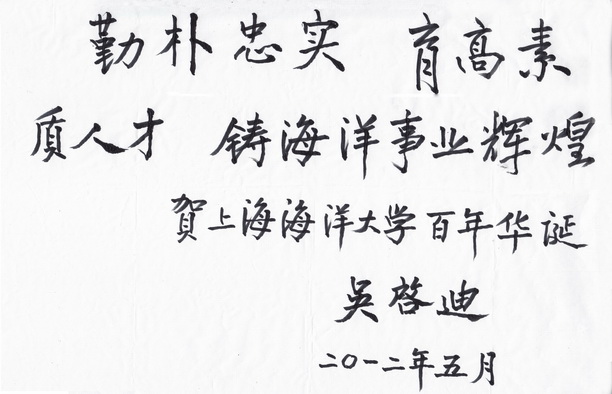 勤朴忠实 育高素
质人才 铸海洋事业辉煌
賀上海海洋大学百年华诞
吴啓迪
二〇一二年五月